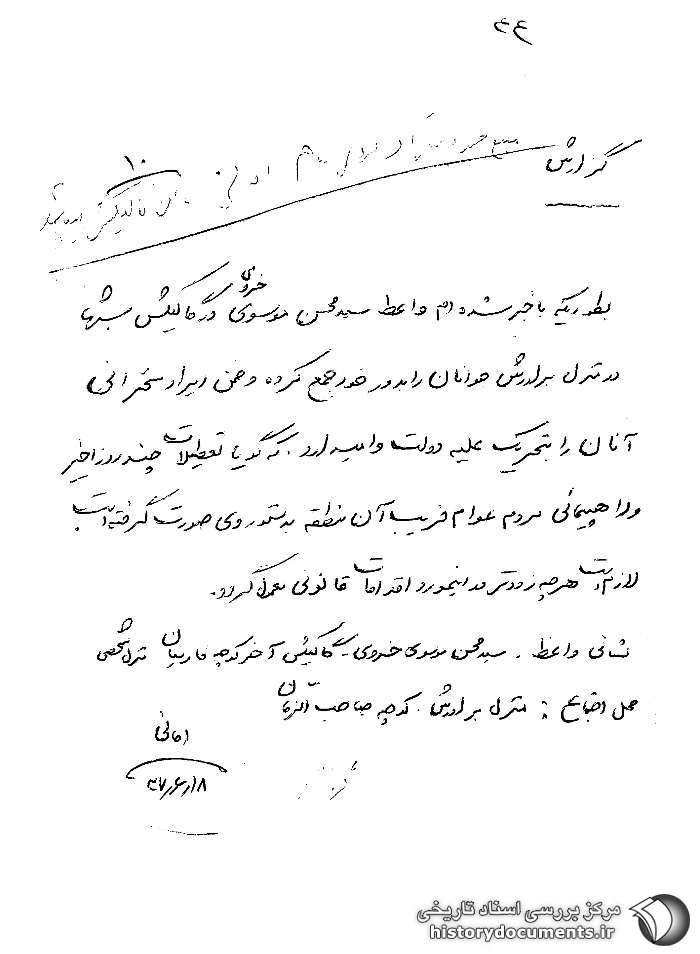 ۴۶
گزارش
۱۰
بطوریکه باخبر شده‌ام واعظ سید محسن موسوی خروی در گالیکش شبها
در منزل برادرش جوانان را بدور خود جمع کرده و ضمن ایراد سخنرانی
آنان را بتحریک علیه دولت وامیدارد. که گویا تعطیلات چند روز اخیر
و راهپیمائی مردم عوام فریب آن منطقه بدستور وی صورت گرفته است
لازم است هرچه زودتر در اینمورد اقدامات قانونی بعمل گردد.
نشانی واعظ. سید محسن موسوی خروی - گالیکش آخر کوچه منزل شخصی
محل اجتماع : منزل برادرش. کوچه صاحب الزمان
امانی
۳۷٫۶٫۱۸
مرکز بررسی اسناد تاریخی
historydocuments.ir